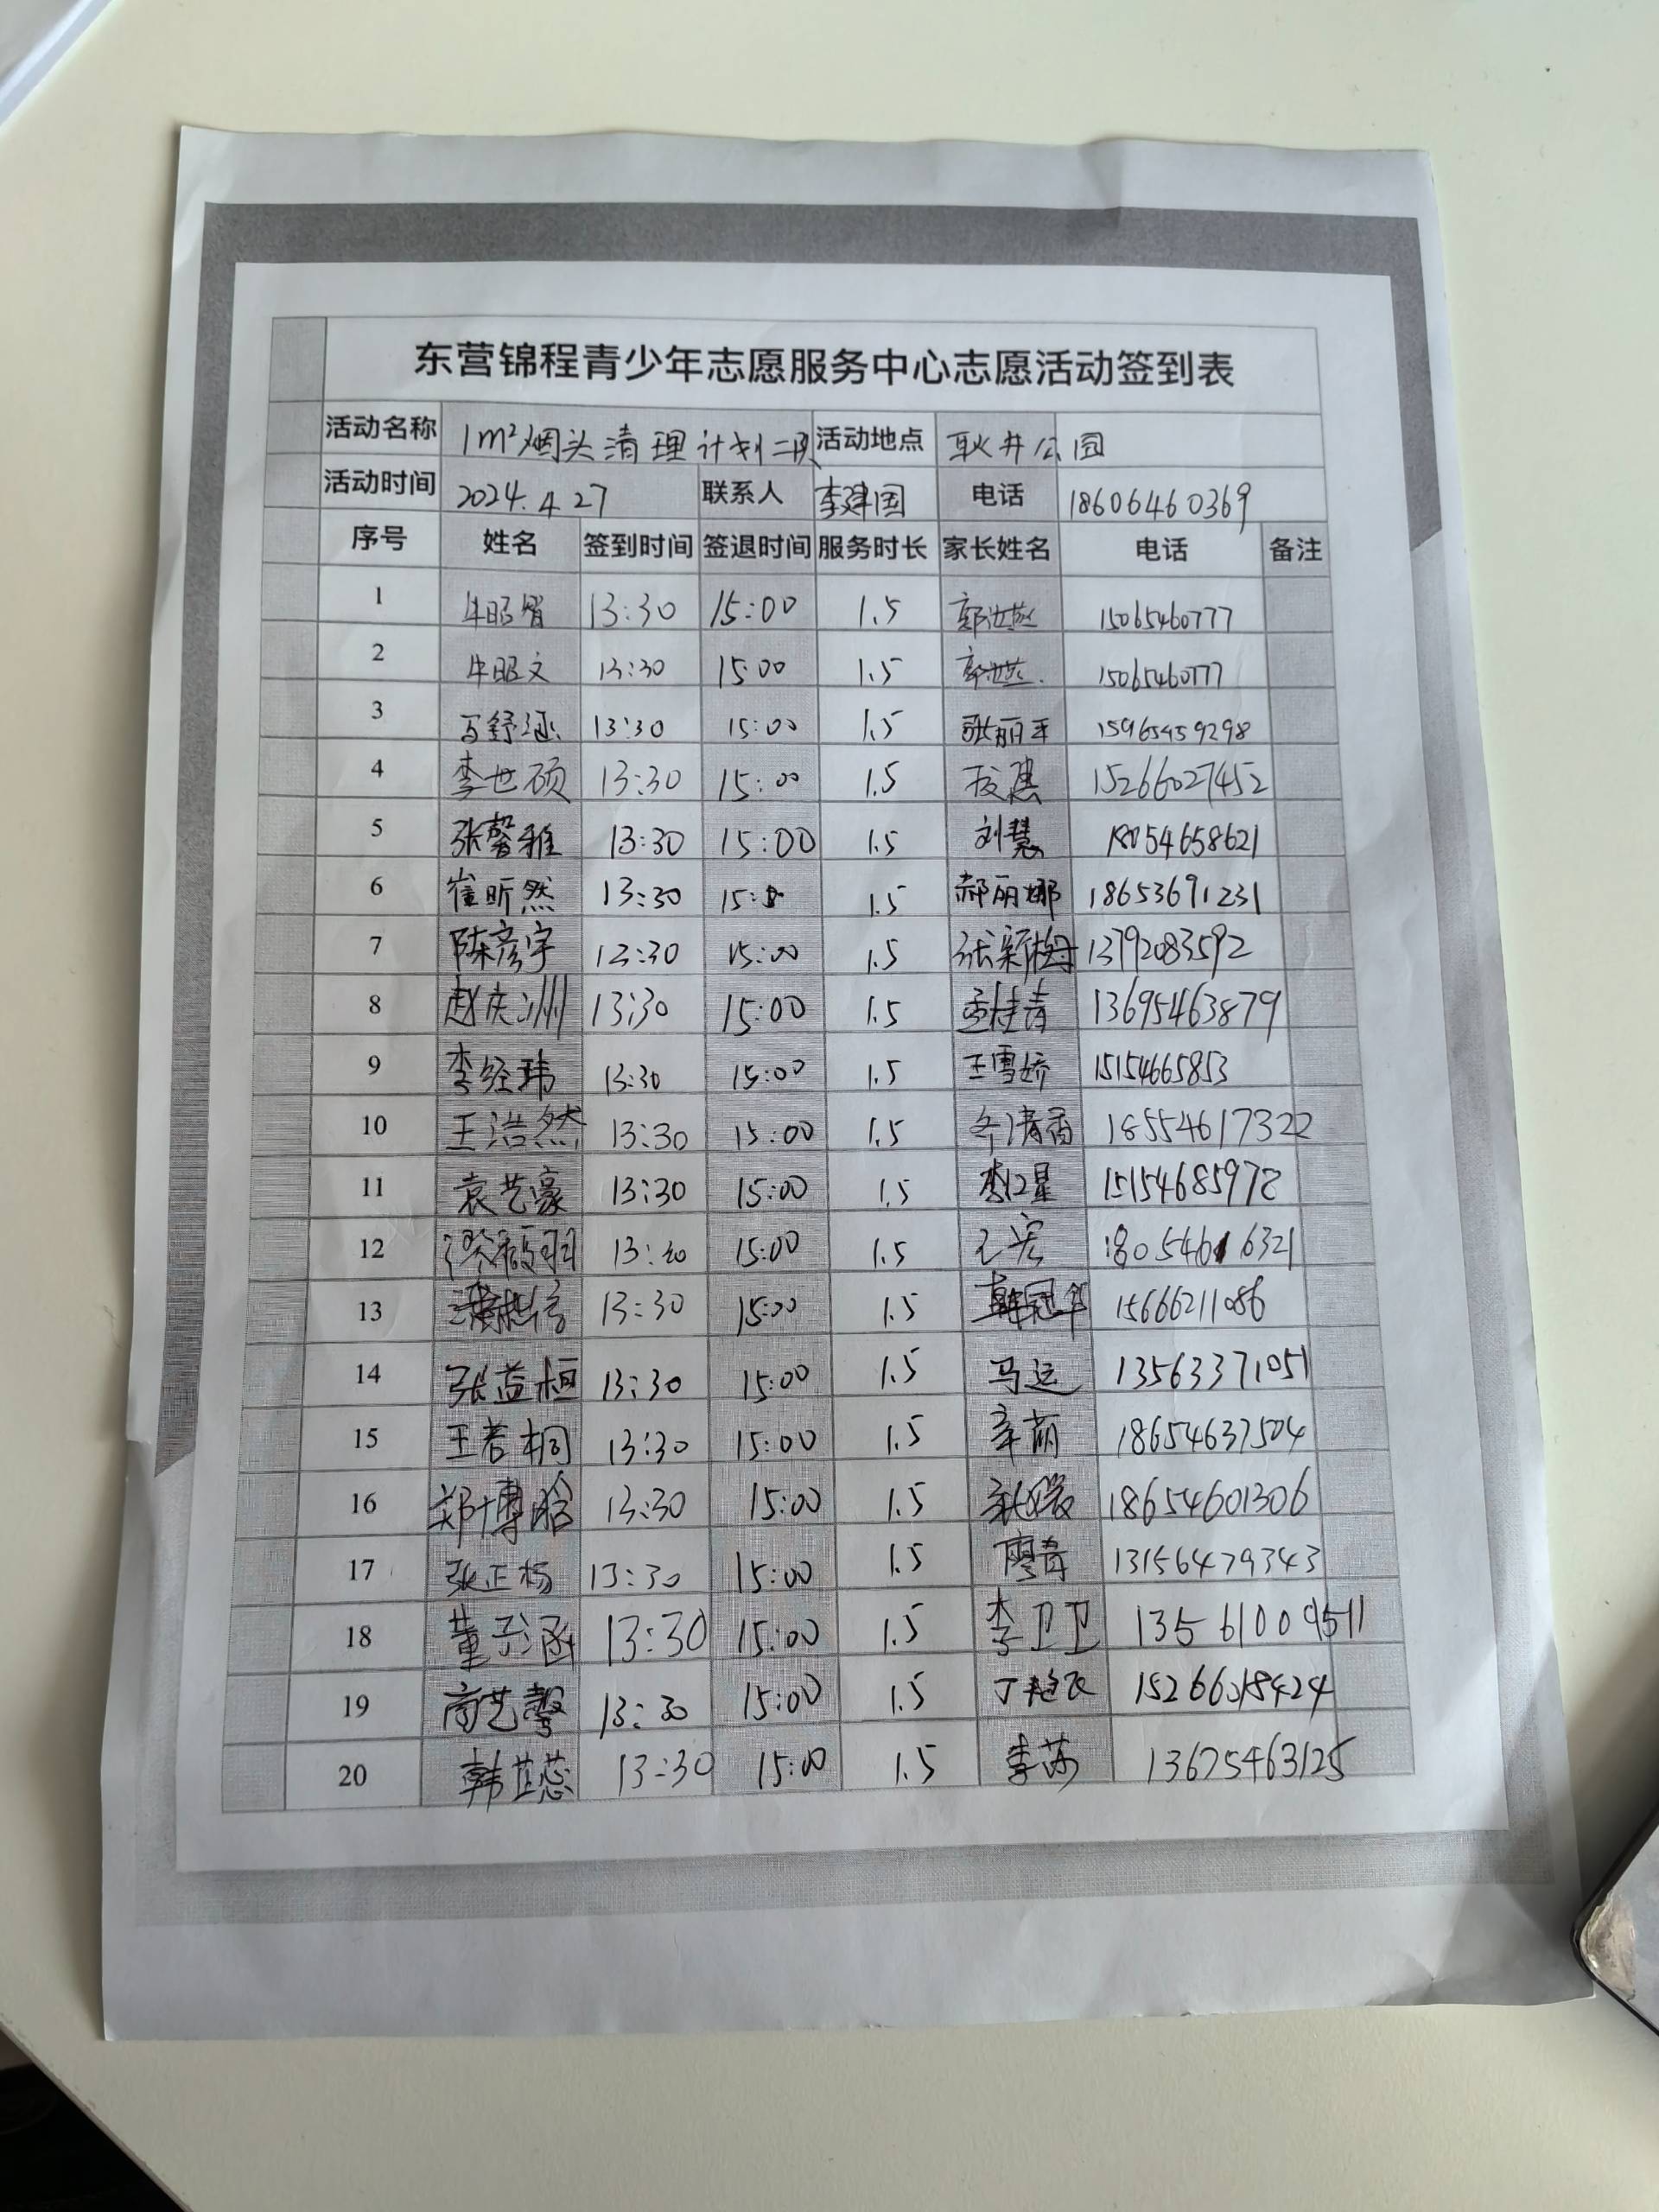 东营锦程青少年志愿服务中心志愿活动签到表
活动名称 1m²烟头清理计划二队 活动地点 耿井公园
活动时间 2024.4.27 联系人 李建国 电话 18606460369
序号 姓名 签到时间 签退时间 服务时长 家长姓名 电话 备注
1 牛昭智 13:30 15:00 1.5 郭洪燕 15065460777
2 牛昭文 13:30 15:00 1.5 郭洪燕 15065460777
3 马舒涵 13:30 15:00 1.5 张丽平 15965459298
4 李世硕 13:30 15:00 1.5 15266027452
5 张馨雅 13:30 15:00 1.5 刘慧 18054658621
6 崔昕然 13:30 15: 1.5 郝丽娜 18653691231
7 陈彦宇 13:30 15:00 1.5 张新梅 13792083592
8 赵庆洲 13:30 15:00 1.5 孟桂青 13695463879
9 李经玮 13:30 15:00 1.5 王雪娇 15154665853
10 王浩然 13:30 15:00 1.5 18554617322
11 袁艺豪 13:30 15:00 1.5 李红星 15154685972
12 13:30 15:00 1.5 18054616321
13 13:30 15:00 1.5 韩冠华 15666211086
14 张益桓 13:30 15:00 1.5 马运 13563371051
15 王若桐 13:30 15:00 1.5 辛萌 18654637504
16 郑博晗 13:30 15:00 1.5 18654601306
17 张正杨 13:30 15:00 1.5 廖青 13156479343
18 董子涵 13:30 15:00 1.5 李卫卫 13561009511
19 商艺馨 13:30 15:00 1.5 15266018424
20 韩芷蕊 13:30 15:00 1.5 李莎 13675463125